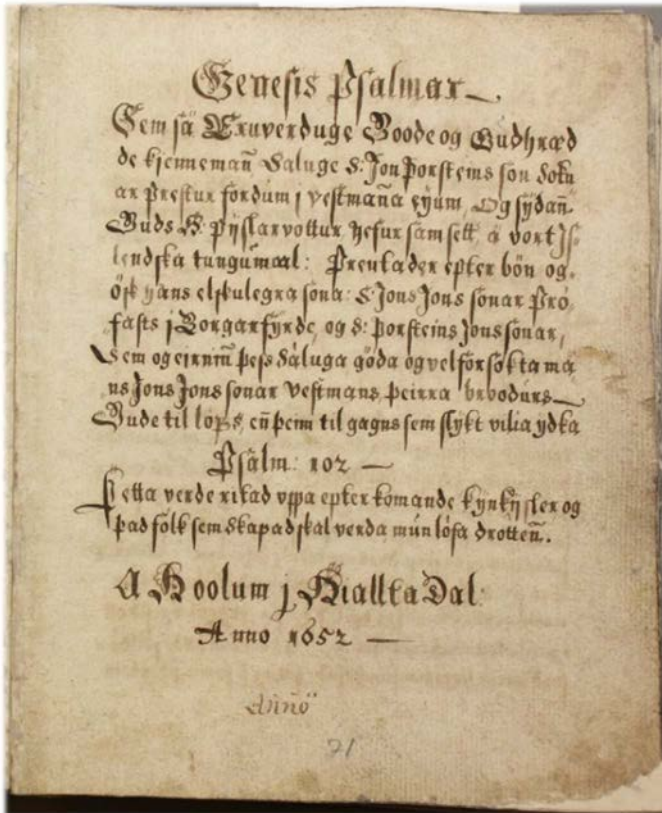 Genesis Psalmar
Sem sä Eruverduge Goode og Gudhræd
de kiennemañ Saluge S: Jon Þorsteins son Sokn
ar Prestur fordum j vestmaña eyum, Og sijdañ
Guds H: Pijslarvottur, hefur samsett, ä vort Js
lendska tungumaal: Prentader epter bön og
ösk hans elskulegra sona: S: Jons Jons sonar Prö
fasts j Borgarfyrde, og S: Þorsteins Jons sonar,
Sem og eirniñ þess säluga göda og velforsökta ma
ns Jons Jons sonar Vestmans, þeirra broodurs
Gude til lops, eñ þeim til gagns sem slijkt vilia ydka
Psälm: 102
Þetta verde ritad vppa epter komande kynkijsler og
það folk sem skapad skal verda mun lofa drotteñ.
A Hoolum j Hiallta Dal:
Anno 1652
Anno
71